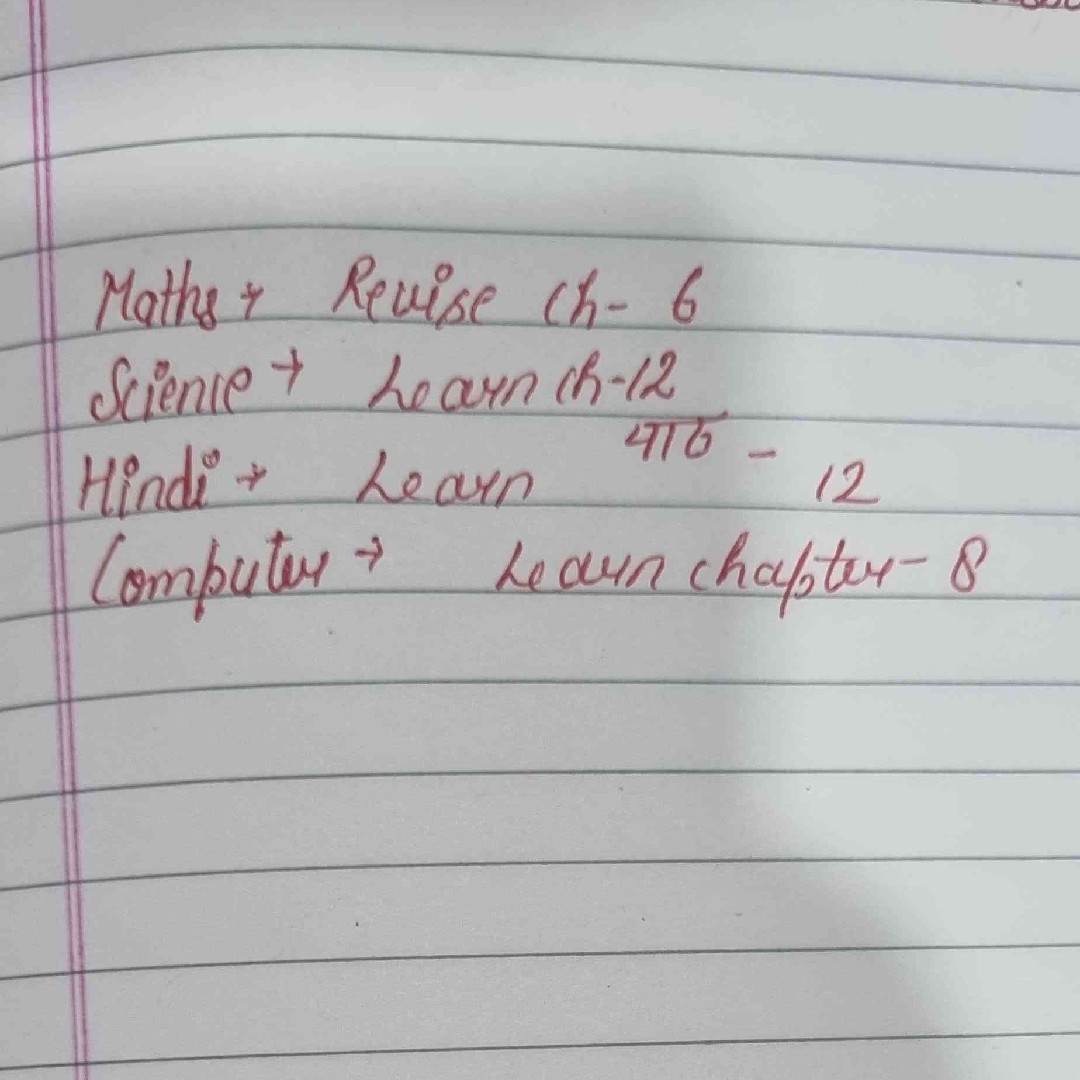 Maths → Revise Ch- 6
Science → Learn Ch-12
Hindi → Learn पाठ - 12
Computer → Learn chapter- 8